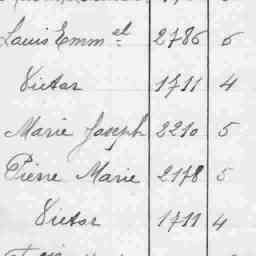 Louis Emm.el 2786 6
Victor 1711 4
Marie Joseph 2210 5
Pierre Marie 2178 5
Victor 1711 4